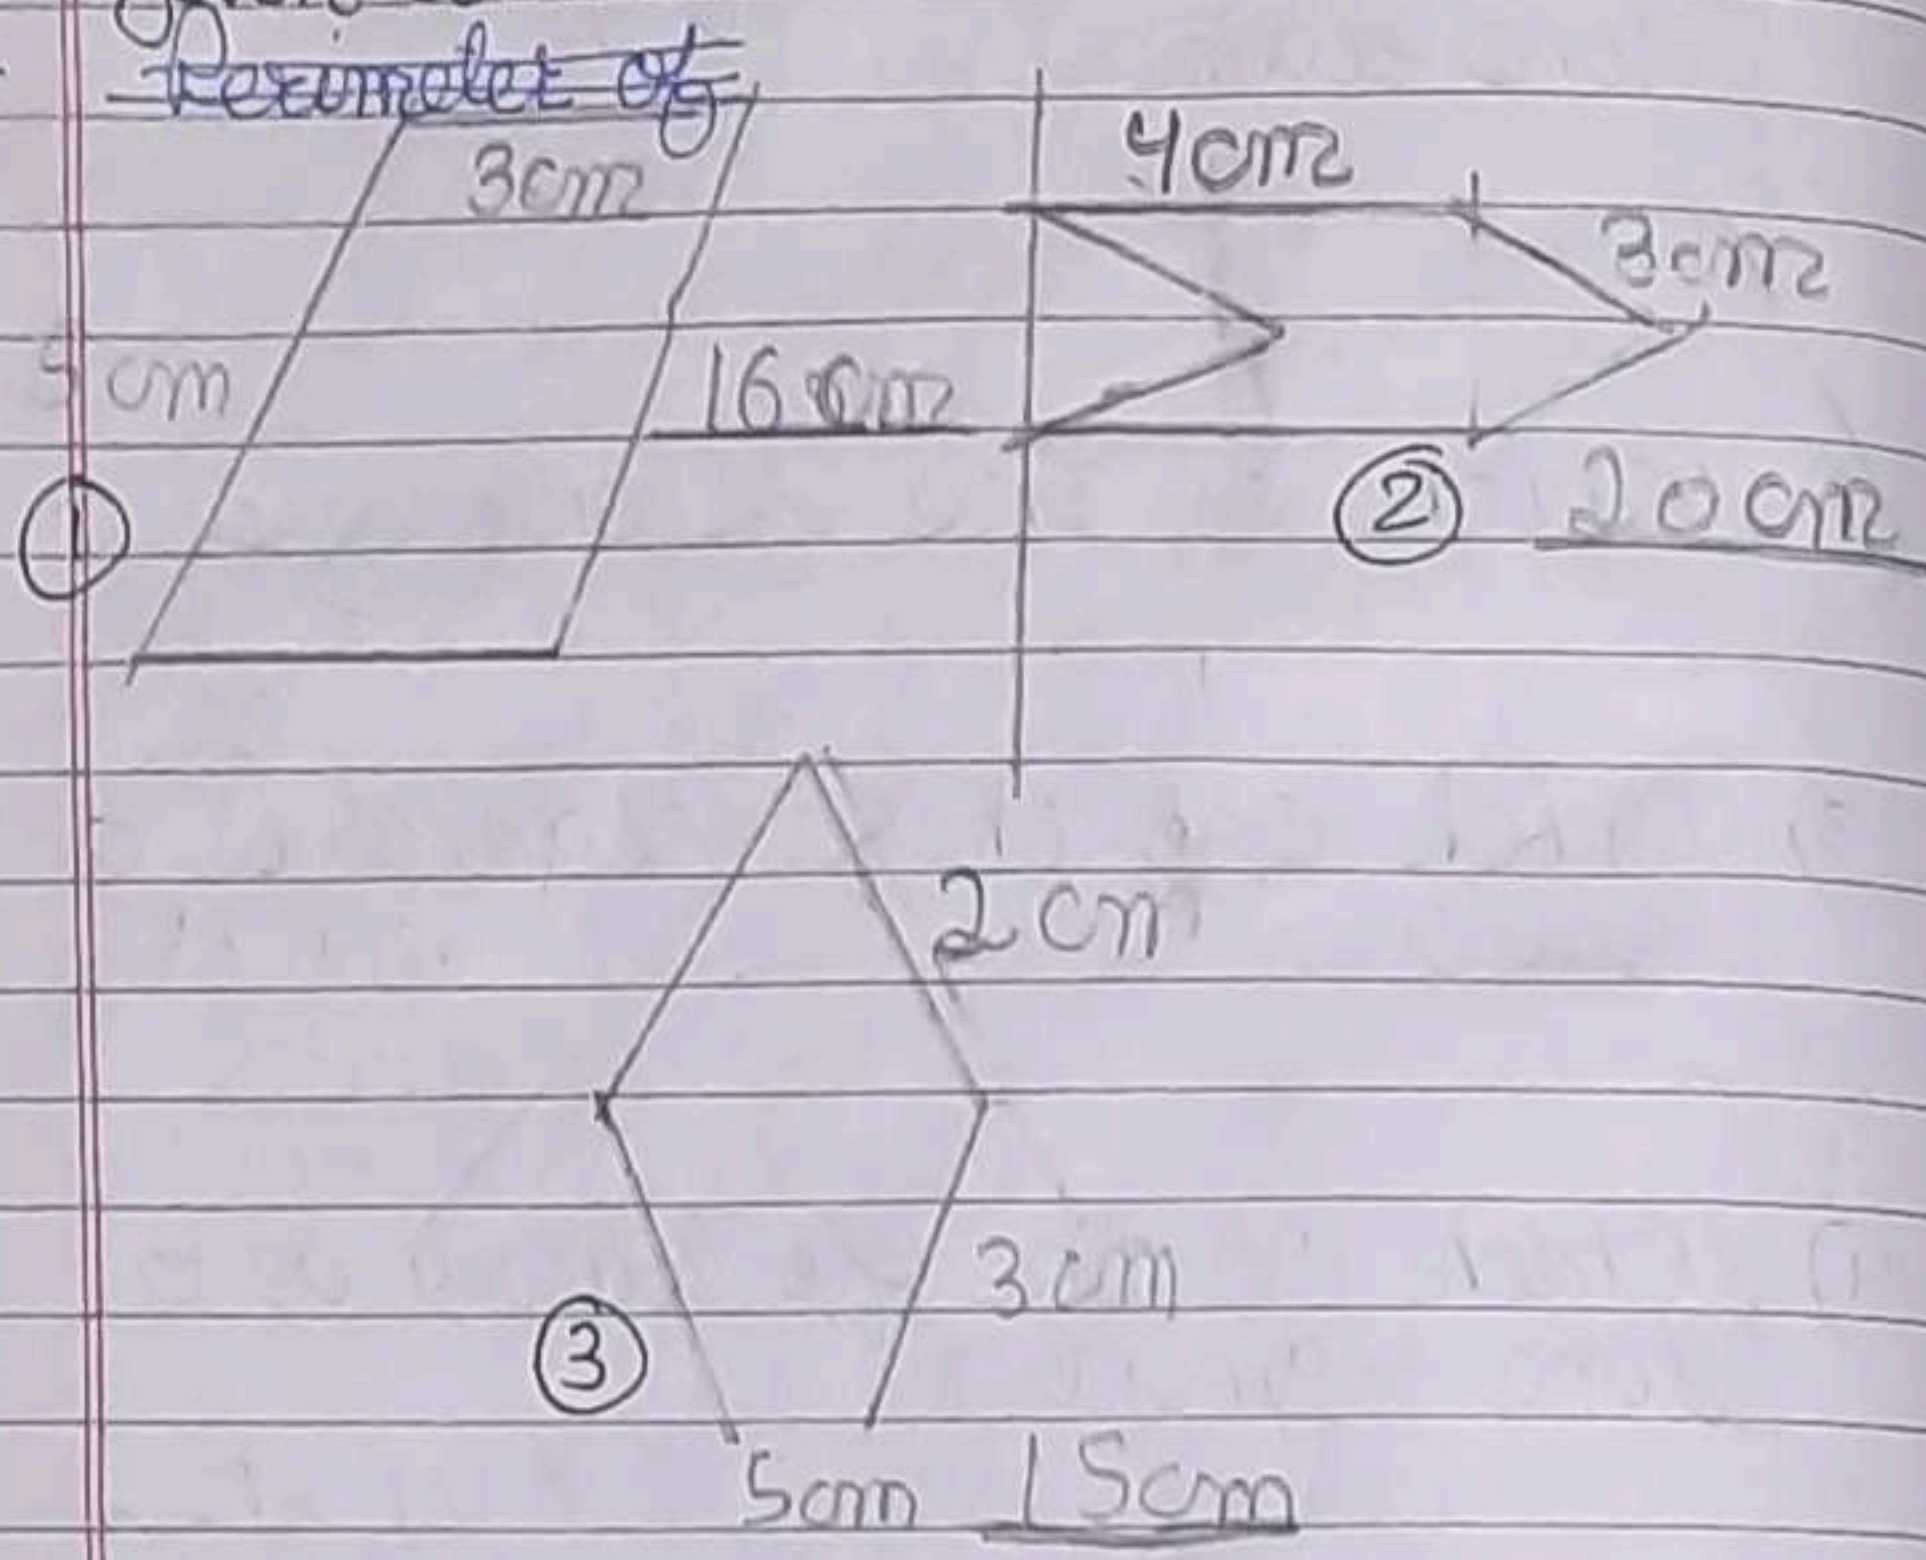 Perimeter of
3cm
4cm
3cm
5 cm
16 cm
1
2
20cm
2cm
3cm
3
5cm 15cm